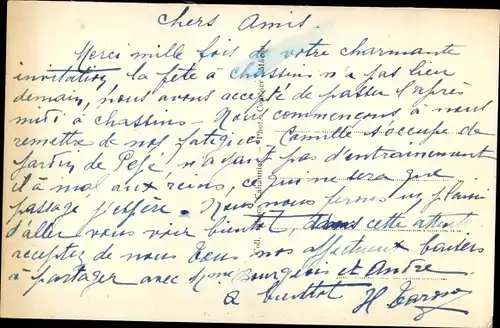 Chers Amis.
Merci mille fois de votre charmante
invitation, la fête à Chassins n'a pas lieu
demain, nous avons accepté de passer l'après
midi à Chassins - Nous commençons à nous
remettre de nos fatigues. Camille s'occupe du
jardin de Pépé, n'ayant pas d'entrainement
il a mal aux reins, ce qui ne sera que
passage j'espère. Nous nous ferons un plaisir
d'aller vous voir bientôt, dans cette attente
recevez de nous tous, nos affectueux baisers
à partager avec Mme Bourgeois et André
à bientôt